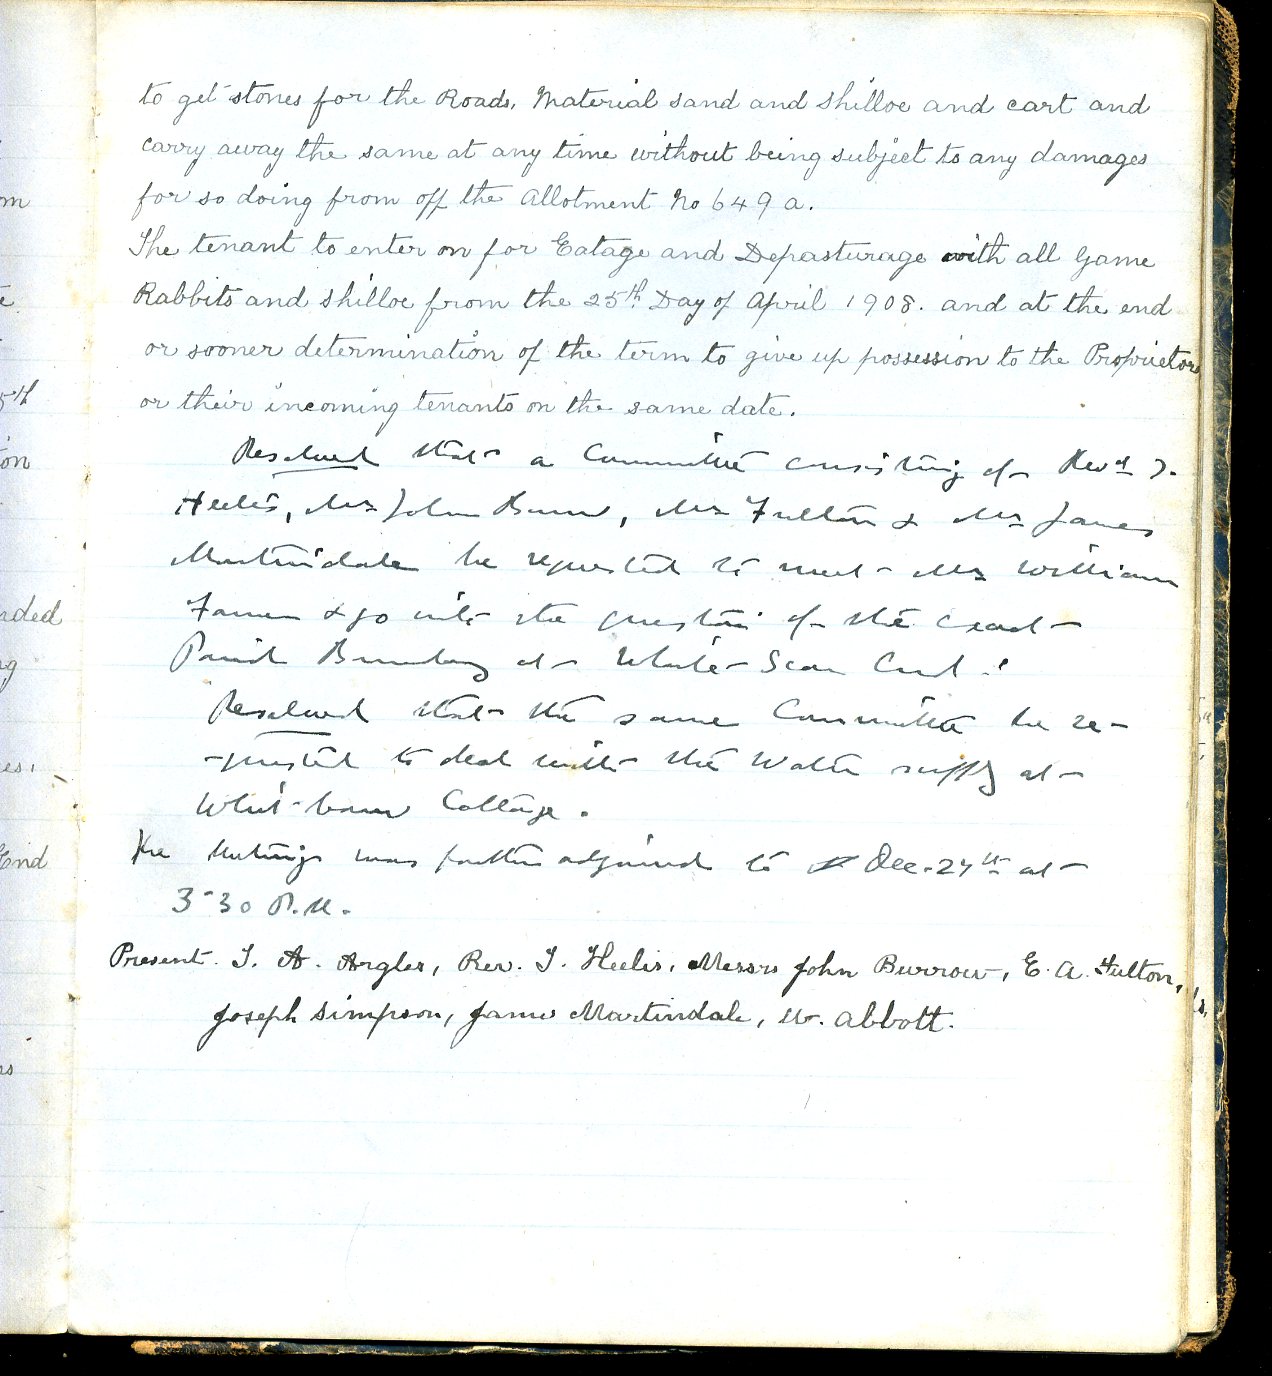 to get stones for the Roads, Material sand and shilloe and cart and
carry away the same at any time without being subject to any damages
for so doing from off the Allotment No 649a.
The tenant to enter on for Eatage and Depasturage with all Game
Rabbits and shilloe from the 25th Day of April 1908. and at the end
or sooner determination of the term to give up possession to the Proprietors
or their incoming tenants on the same date.
Resolved that a Committee consisting of Revd T.
Heelis, Mr John Burrow, Mr Fulton & Mr James
Martindale be requested to meet Mr William
& go into the question of the exact
Parish Boundary at White Scar End.
Resolved that the same Committee be re-
-quested to deal with the Water supply at
Cottage.
The Meeting was further adjourned to Dec. 27th at
3-30 P.M.
Present. T. A. Argles, Rev. T. Heelis, Messrs John Burrow, E. A. Fulton,
Joseph Simpson, James Martindale, W. Abbott.